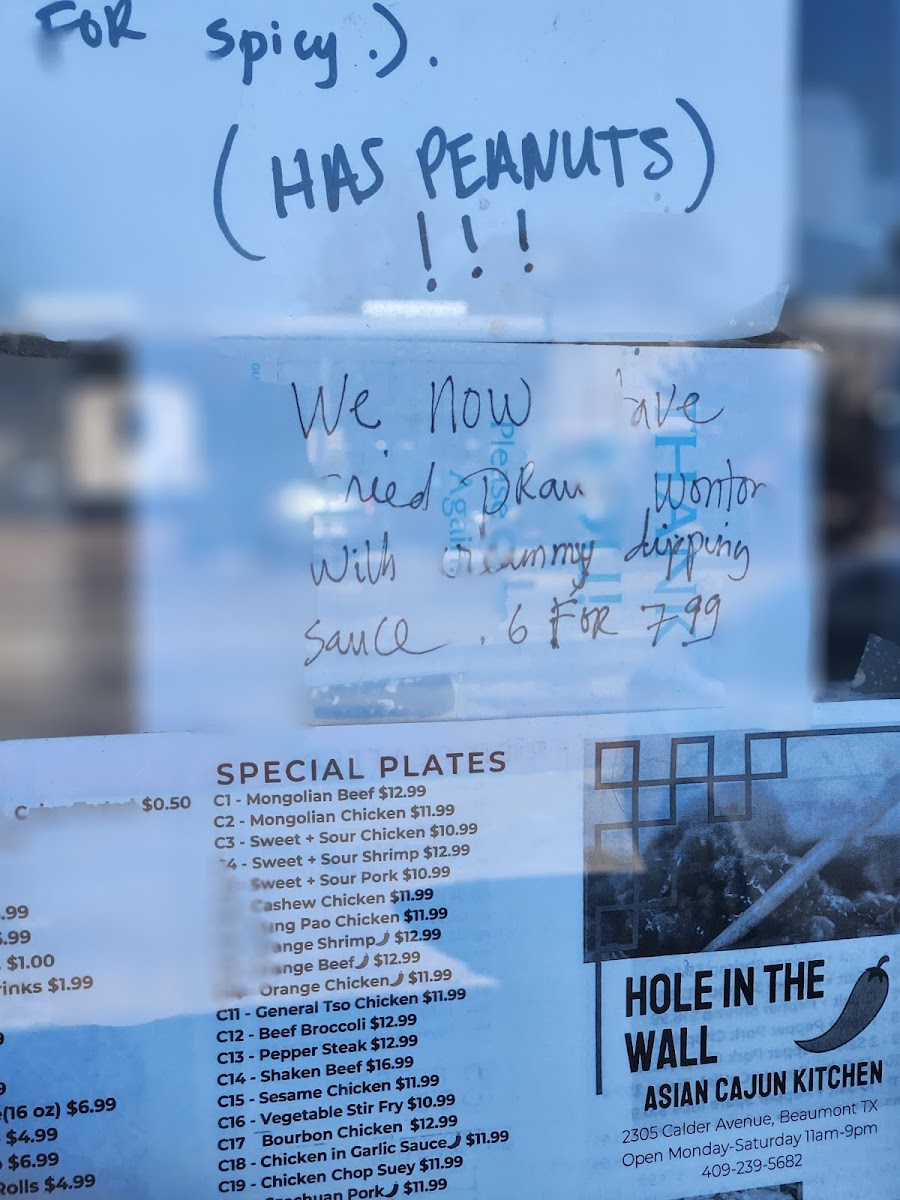 FOR spicy.).
(HAS PEANUTS)
!!!
We Now ave
ried DRaw Wonton
with yummy dipping
sauce . 6 FOR 7.99
THANK
Please
Again
$0.50
.99
.99
$1.00
rinks $1.99
(16 oz) $6.99
$4.99
$6.99
Rolls $4.99
SPECIAL PLATES
C1 - Mongolian Beef $12.99
C2 - Mongolian Chicken $11.99
C3 - Sweet + Sour Chicken $10.99
4 - Sweet + Sour Shrimp $12.99
Sweet + Sour Pork $10.99
Cashew Chicken $11.99
ung Pao Chicken $11.99
ange Shrimp $12.99
ange Beef $12.99
Orange Chicken $11.99
C11 - General Tso Chicken $11.99
C12 - Beef Broccoli $12.99
C13 - Pepper Steak $12.99
C14 - Shaken Beef $16.99
C15 - Sesame Chicken $11.99
C16 - Vegetable Stir Fry $10.99
C17 Bourbon Chicken $12.99
C18 - Chicken in Garlic Sauce $11.99
C19 - Chicken Chop Suey $11.99
Pork $11.99
HOLE IN THE
WALL
ASIAN CAJUN KITCHEN
2305 Calder Avenue, Beaumont TX
Open Monday-Saturday 11am-9pm
409-239-5682